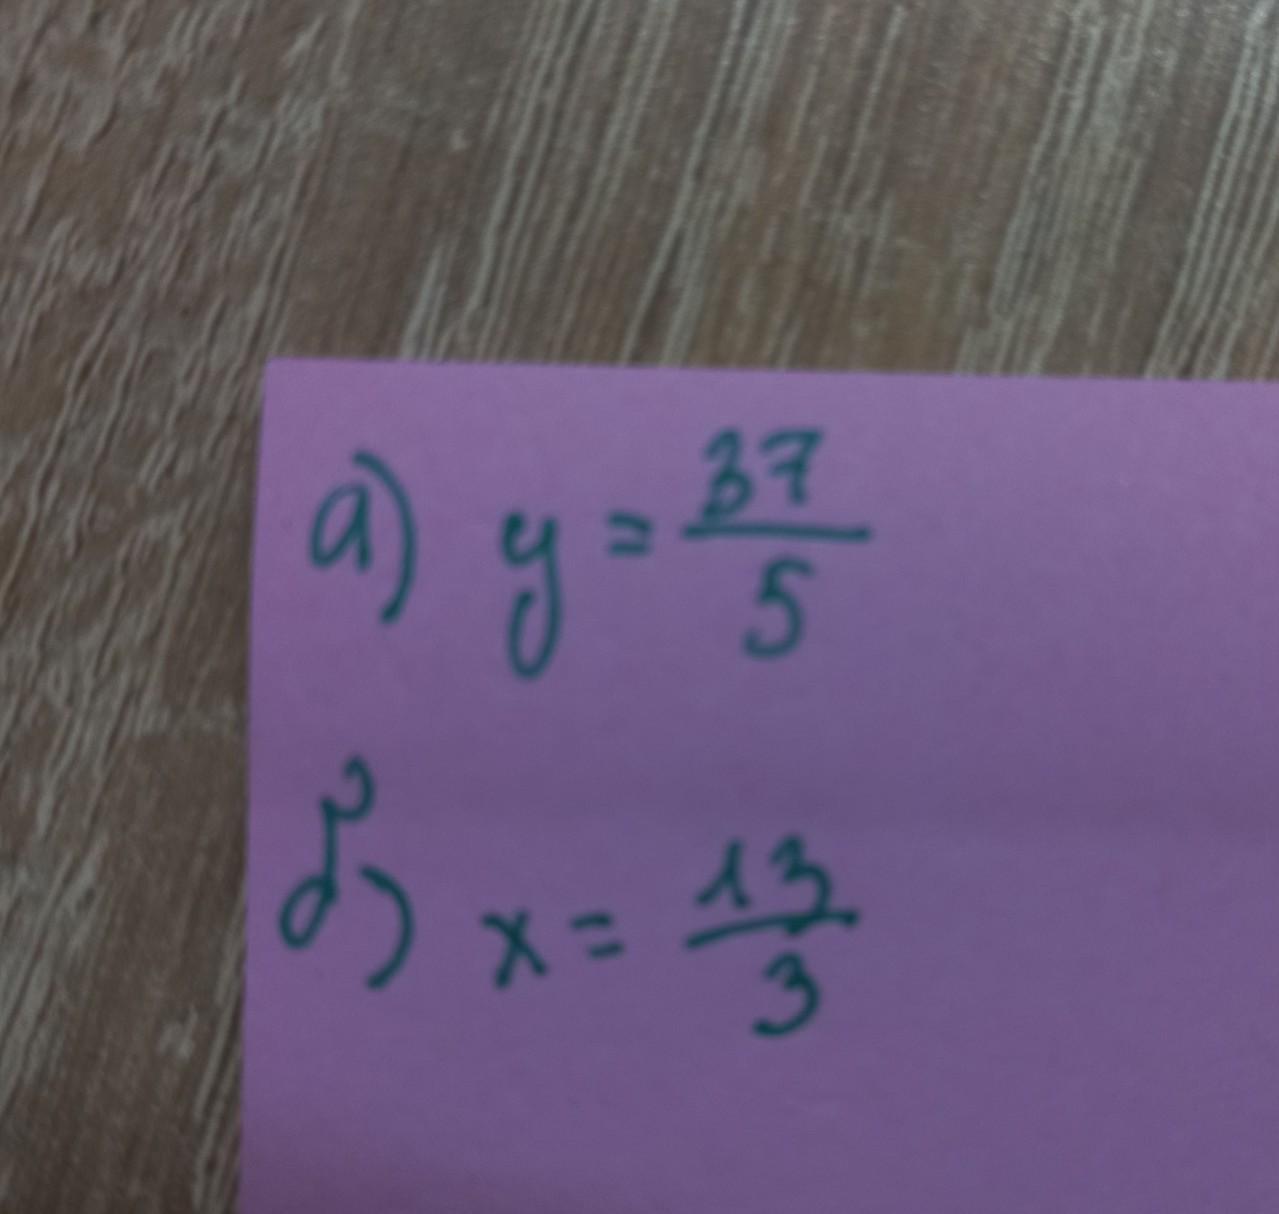 а) y = 37/5
б) x = 13/3